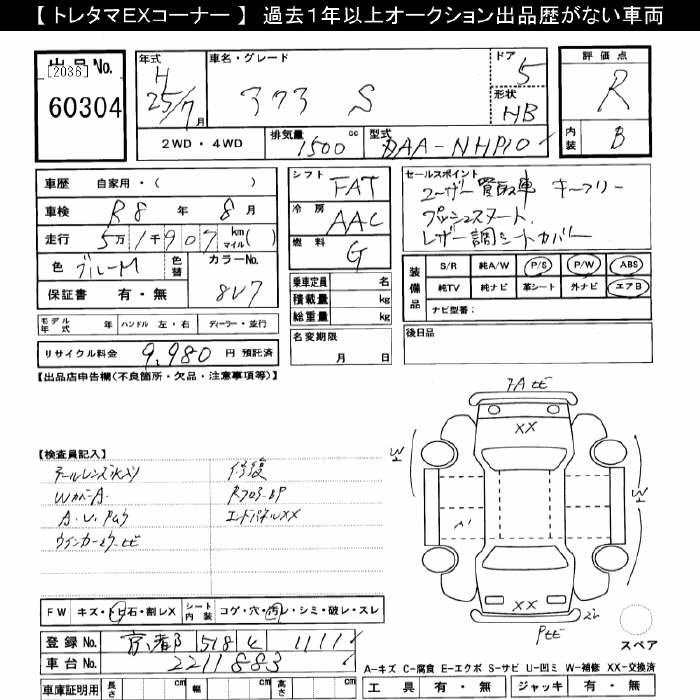 【 トレタマEXコーナー 】 過去1年以上オークション出品歴がない車両
出品 No.
[2036]
60304
年式
H
25/7月
車名・グレード
アクア S
ドア
5
形状
HB
評価点
R
内装
B
2WD・4WD
排気量
1500 cc
型式
DAA-NHP10
車歴 自家用・( )
車検 R8 年 8 月
走行 5万1千907 km マイル( )
色 ブルーM 色替 カラーNo.
8V7
保証書 有・無
シフト FAT
冷房 AAC
燃料 G
乗車定員 名
積載量 kg
総重量 kg
セールスポイント
ユーザー買取車 キーフリー
プッシュスタート.
レザー調シートカバー
装備品
S/R 純A/W P/S P/W ABS
純TV 純ナビ 革シート 外ナビ エアB
ナビ型番:
モデル年式 年 ハンドル 左・右 ディーラー・並行
リサイクル料金 9,980 円 預託済
名変期限
月 日
後日品
【出品店申告欄(不良箇所・欠品・注意事項等)】
【検査員記入】
修復
WカバーA
エンドパネルXX
XX
W
W
XX
スペア
FW キズ・トビ石・割レX シート内装 コゲ・穴・汚レ・シミ・破レ・スレ
登録 No. 京都 518 1111
車台 No. 2211883
A-キズ C-腐食 E-エクボ S-サビ U-凹ミ W-補修 XX-交換済
車庫証明用 長さ cm 幅 cm 高さ cm
工具 有・無 ジャッキ 有・無